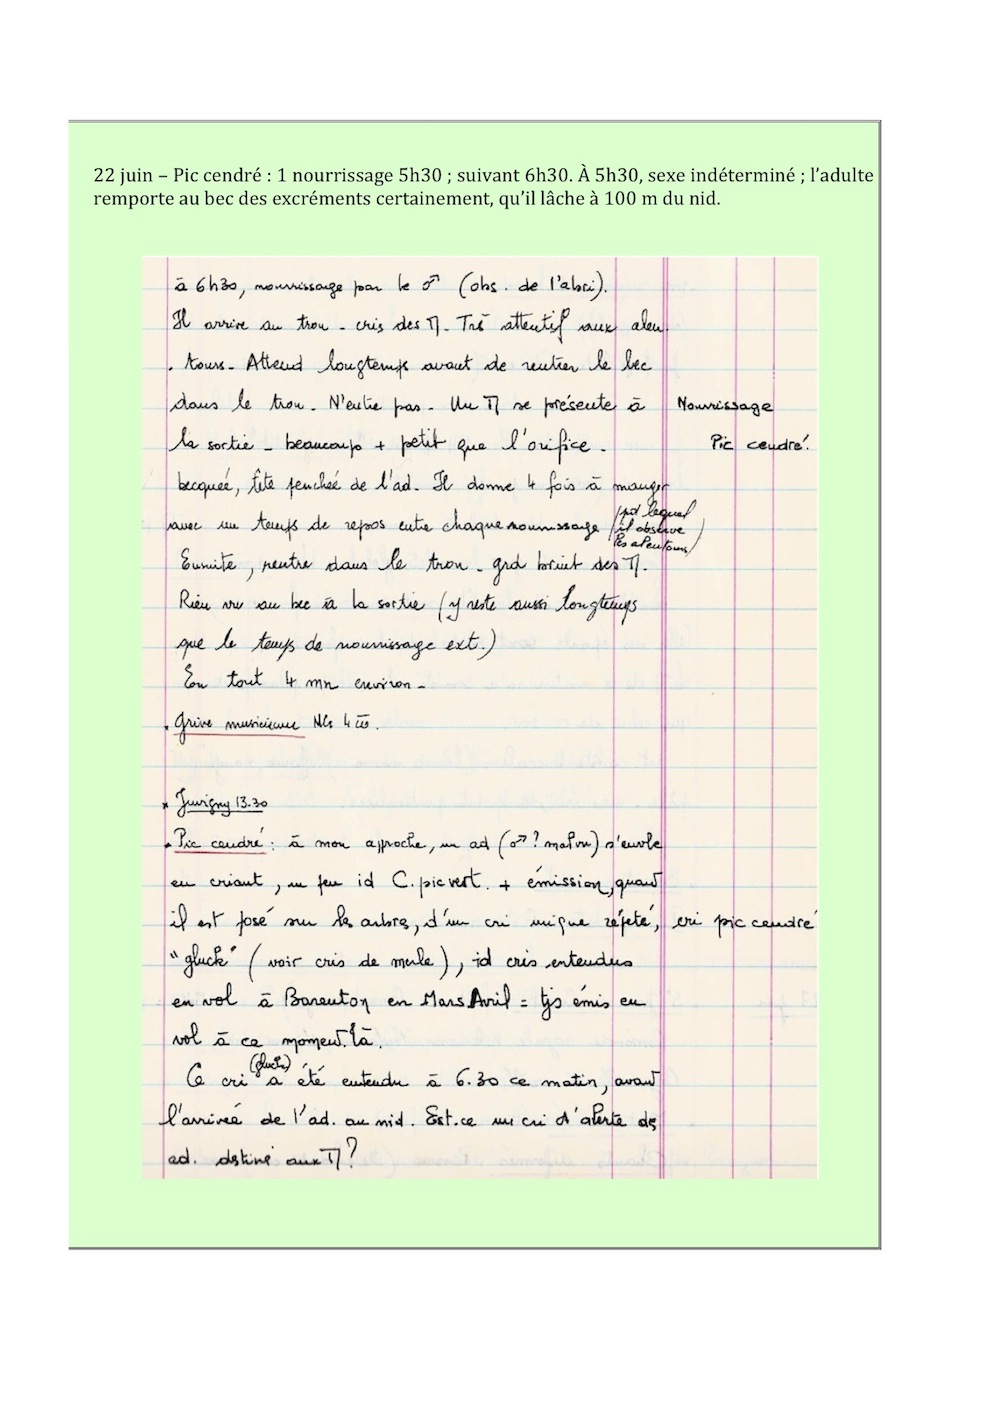 22 juin – Pic cendré : 1 nourrissage 5h30 ; suivant 6h30. À 5h30, sexe indéterminé ; l’adulte
remporte au bec des excréments certainement, qu’il lâche à 100 m du nid.
à 6h30, nourrissage par le ♂ (obs. de l'abri).
Il arrive au trou - cris des Π. Très attentif aux alen
tours. Attend longtemps avant de rentrer le bec
dans le trou. N'entre pas. Un Π se présente à Nourrissage
la sortie - beaucoup + petit que l'orifice. Pic cendré.
becquée, tête penchée de l'ad. Il donne 4 fois à manger
avec un temps de repos entre chaque nourrissage (pdt lequel
il observe
les alentours)
Ensuite, rentre dans le trou - grd bruit des Π.
Rien vu au bec à la sortie (y reste aussi longtemps
que le temps de nourrissage ext.)
En tout 4 mn environ -
Grive musicienne
Juvigny 13.30
Pic cendré : à mon approche, un ad (♂? mal vu) s'envole
en criant, un peu id C. pic vert. + émission, quand
il est posé sur les arbres, d'un cri unique répété, cri pic cendré
"gluck" (voir cris de merle), id cris entendus
en vol à Barenton en Mars.Avril = tjs émis en
vol à ce moment.là.
(gluck)
Ce cri a été entendu à 6.30 ce matin, avant
l'arrivée de l'ad. au nid. Est.ce un cri d'alerte des
ad. destiné aux Π ?